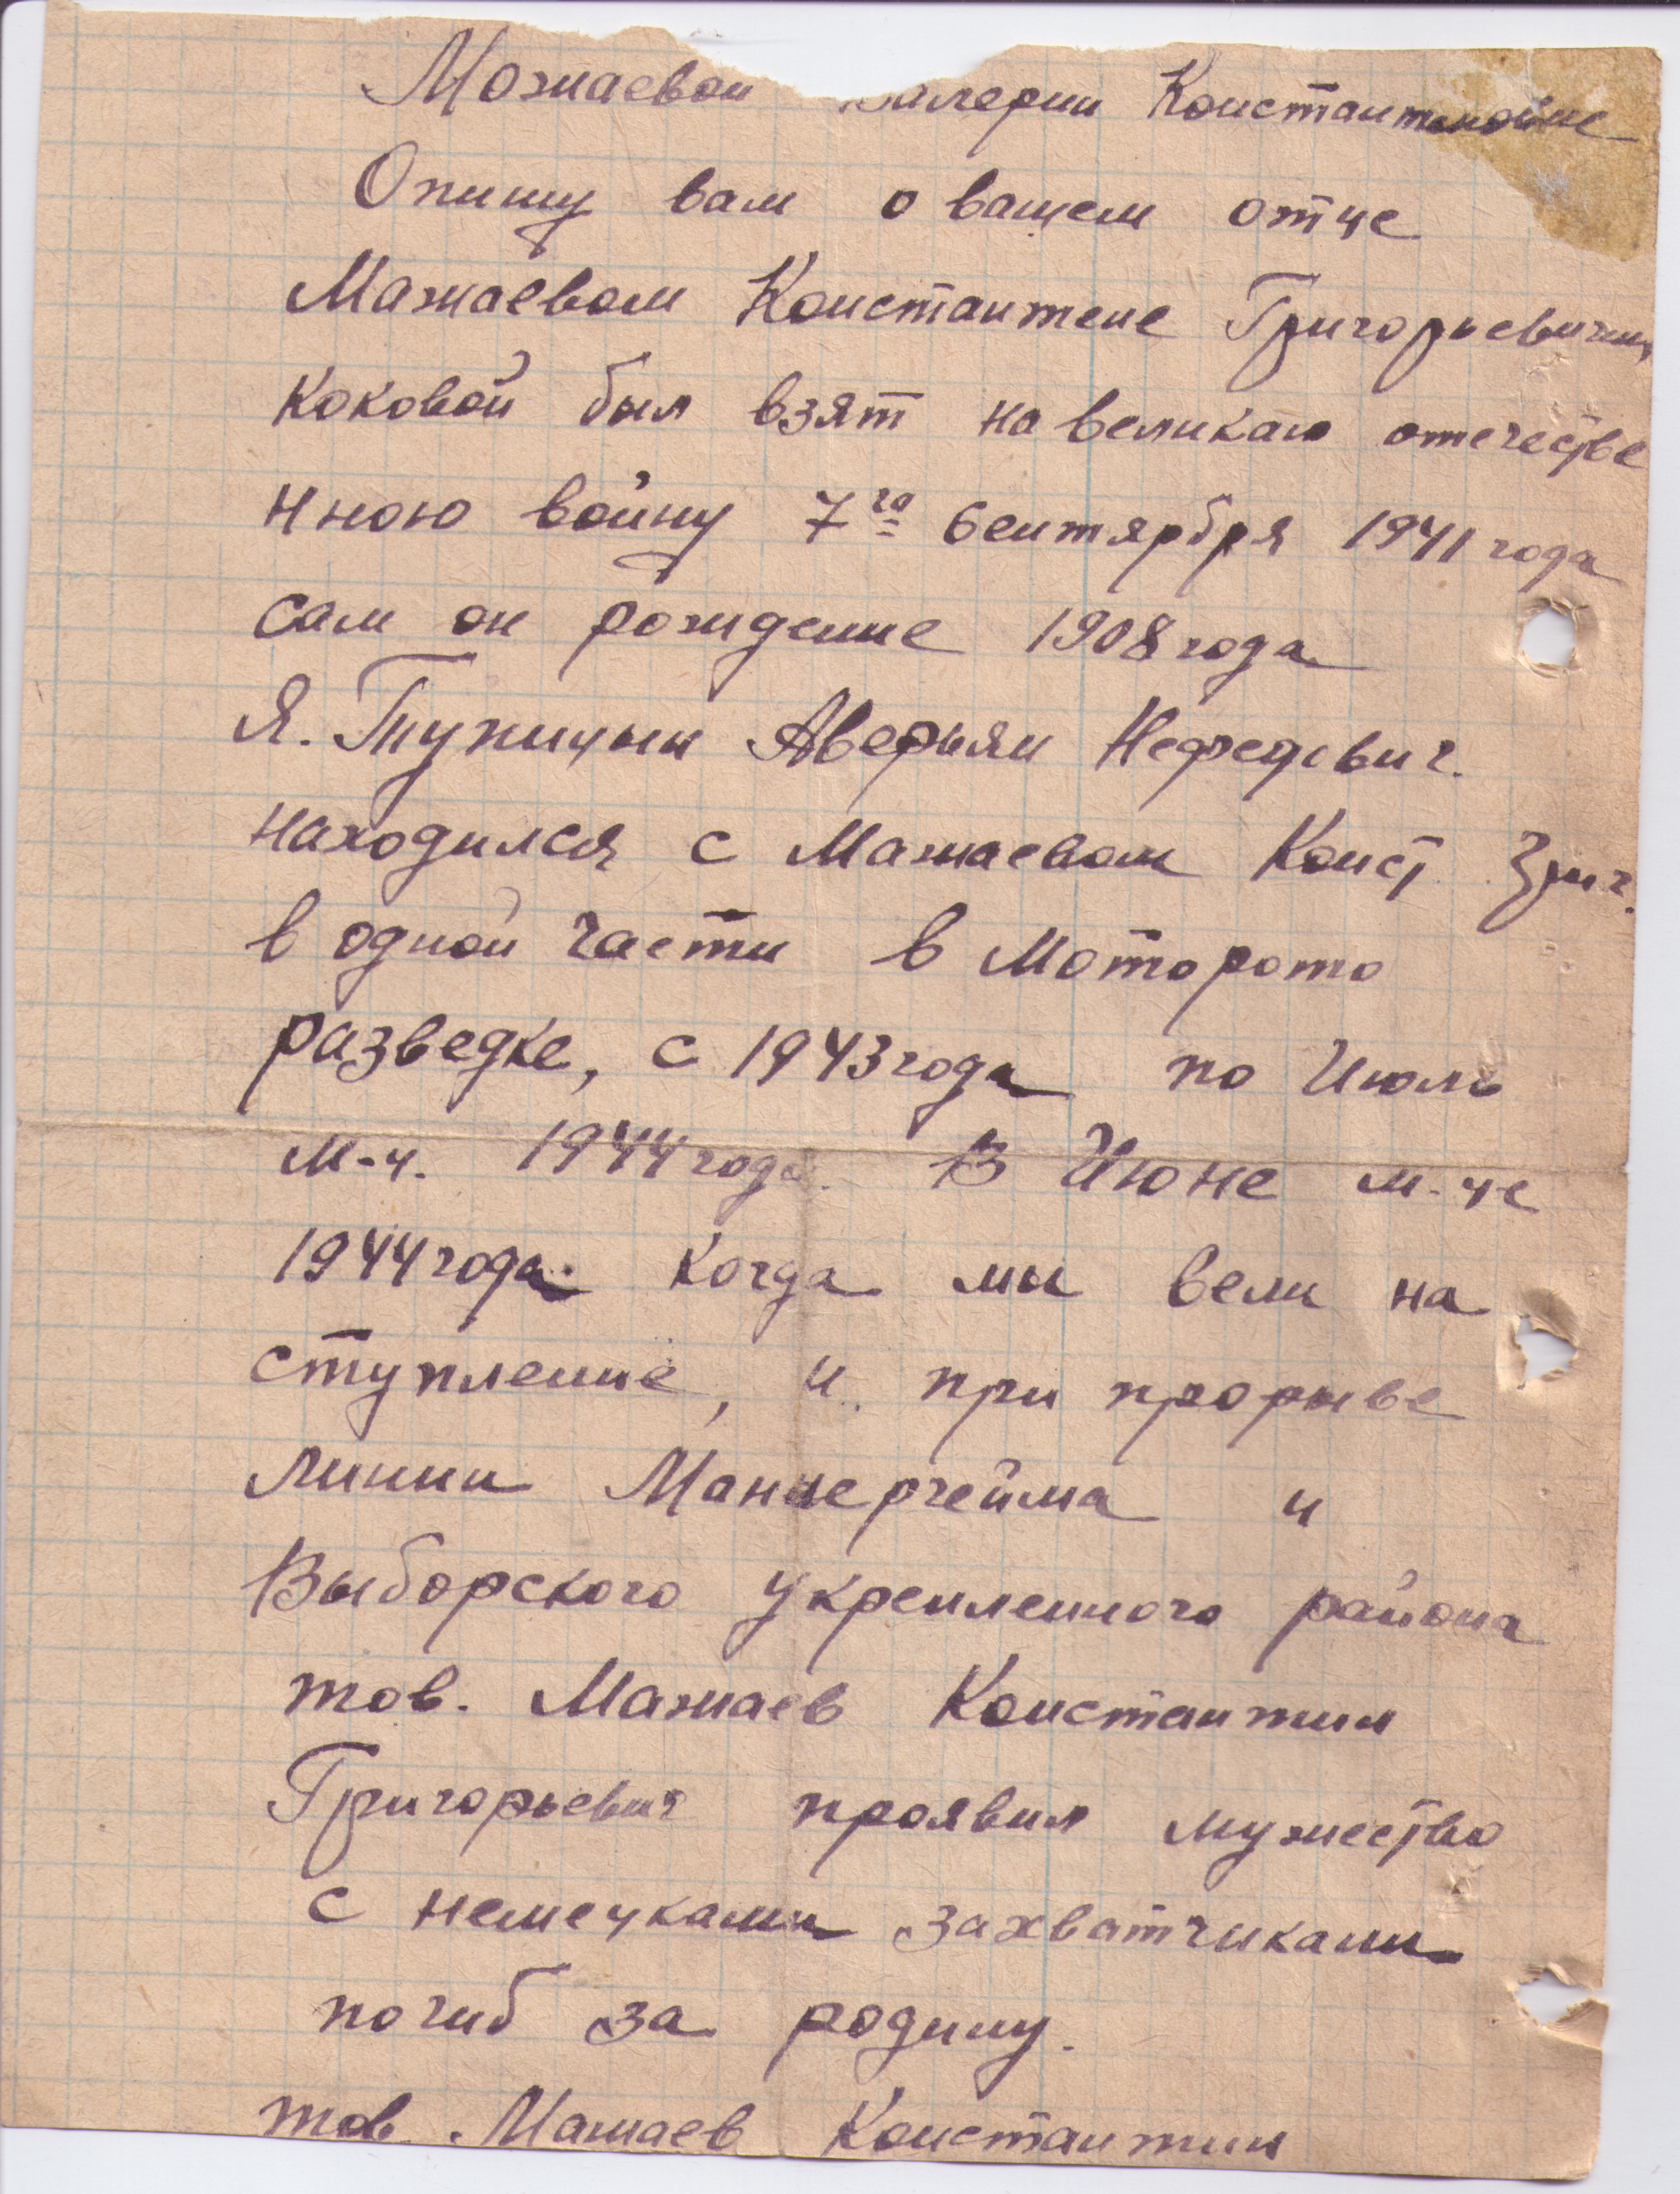 Можаевой Валерии Константиновне
Опишу вам о вашем отце
Мажаевом Константене Григорьевичи,
коковой был взят на великаю отечестве
нною войну 7го Сентярбря 1941 года
сам он рождение 1908 года
Я. Тупицын Аверьян Нефедович.
находился с Мажаевом Конст Григ.
в одной части в Моторото
разведке, с 1943 года по Июль
м-ц. 1944 года. В Июне м-це
1944 года. когда мы вели на
ступление, и при прорыве
линии Маннергейма и
Выборского укрепленного района
тов. Мажаев Константин
Григорьевич проявил мужество
с немецками захватчиками
погиб за родину.
тов. Мажаев Константин